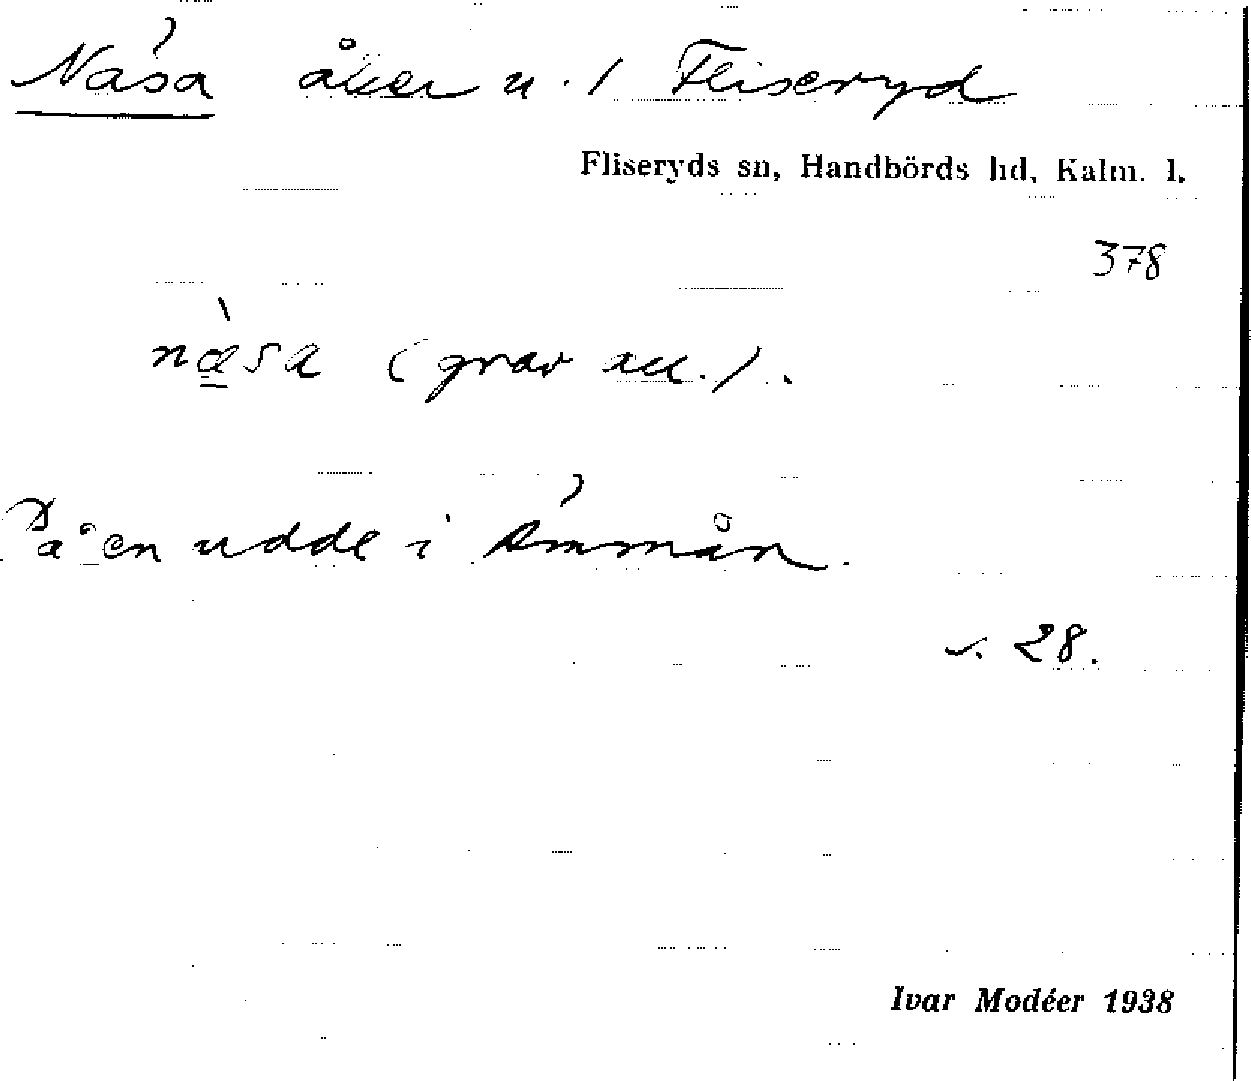 Näsa åker u. / Fliseryd
Fliseryds sn, Handbörds hd, Kalm. l.
378
næ̀sa (grav acc.).
På en udde i Ämmån.
s. 28.
Ivar Modéer 1938